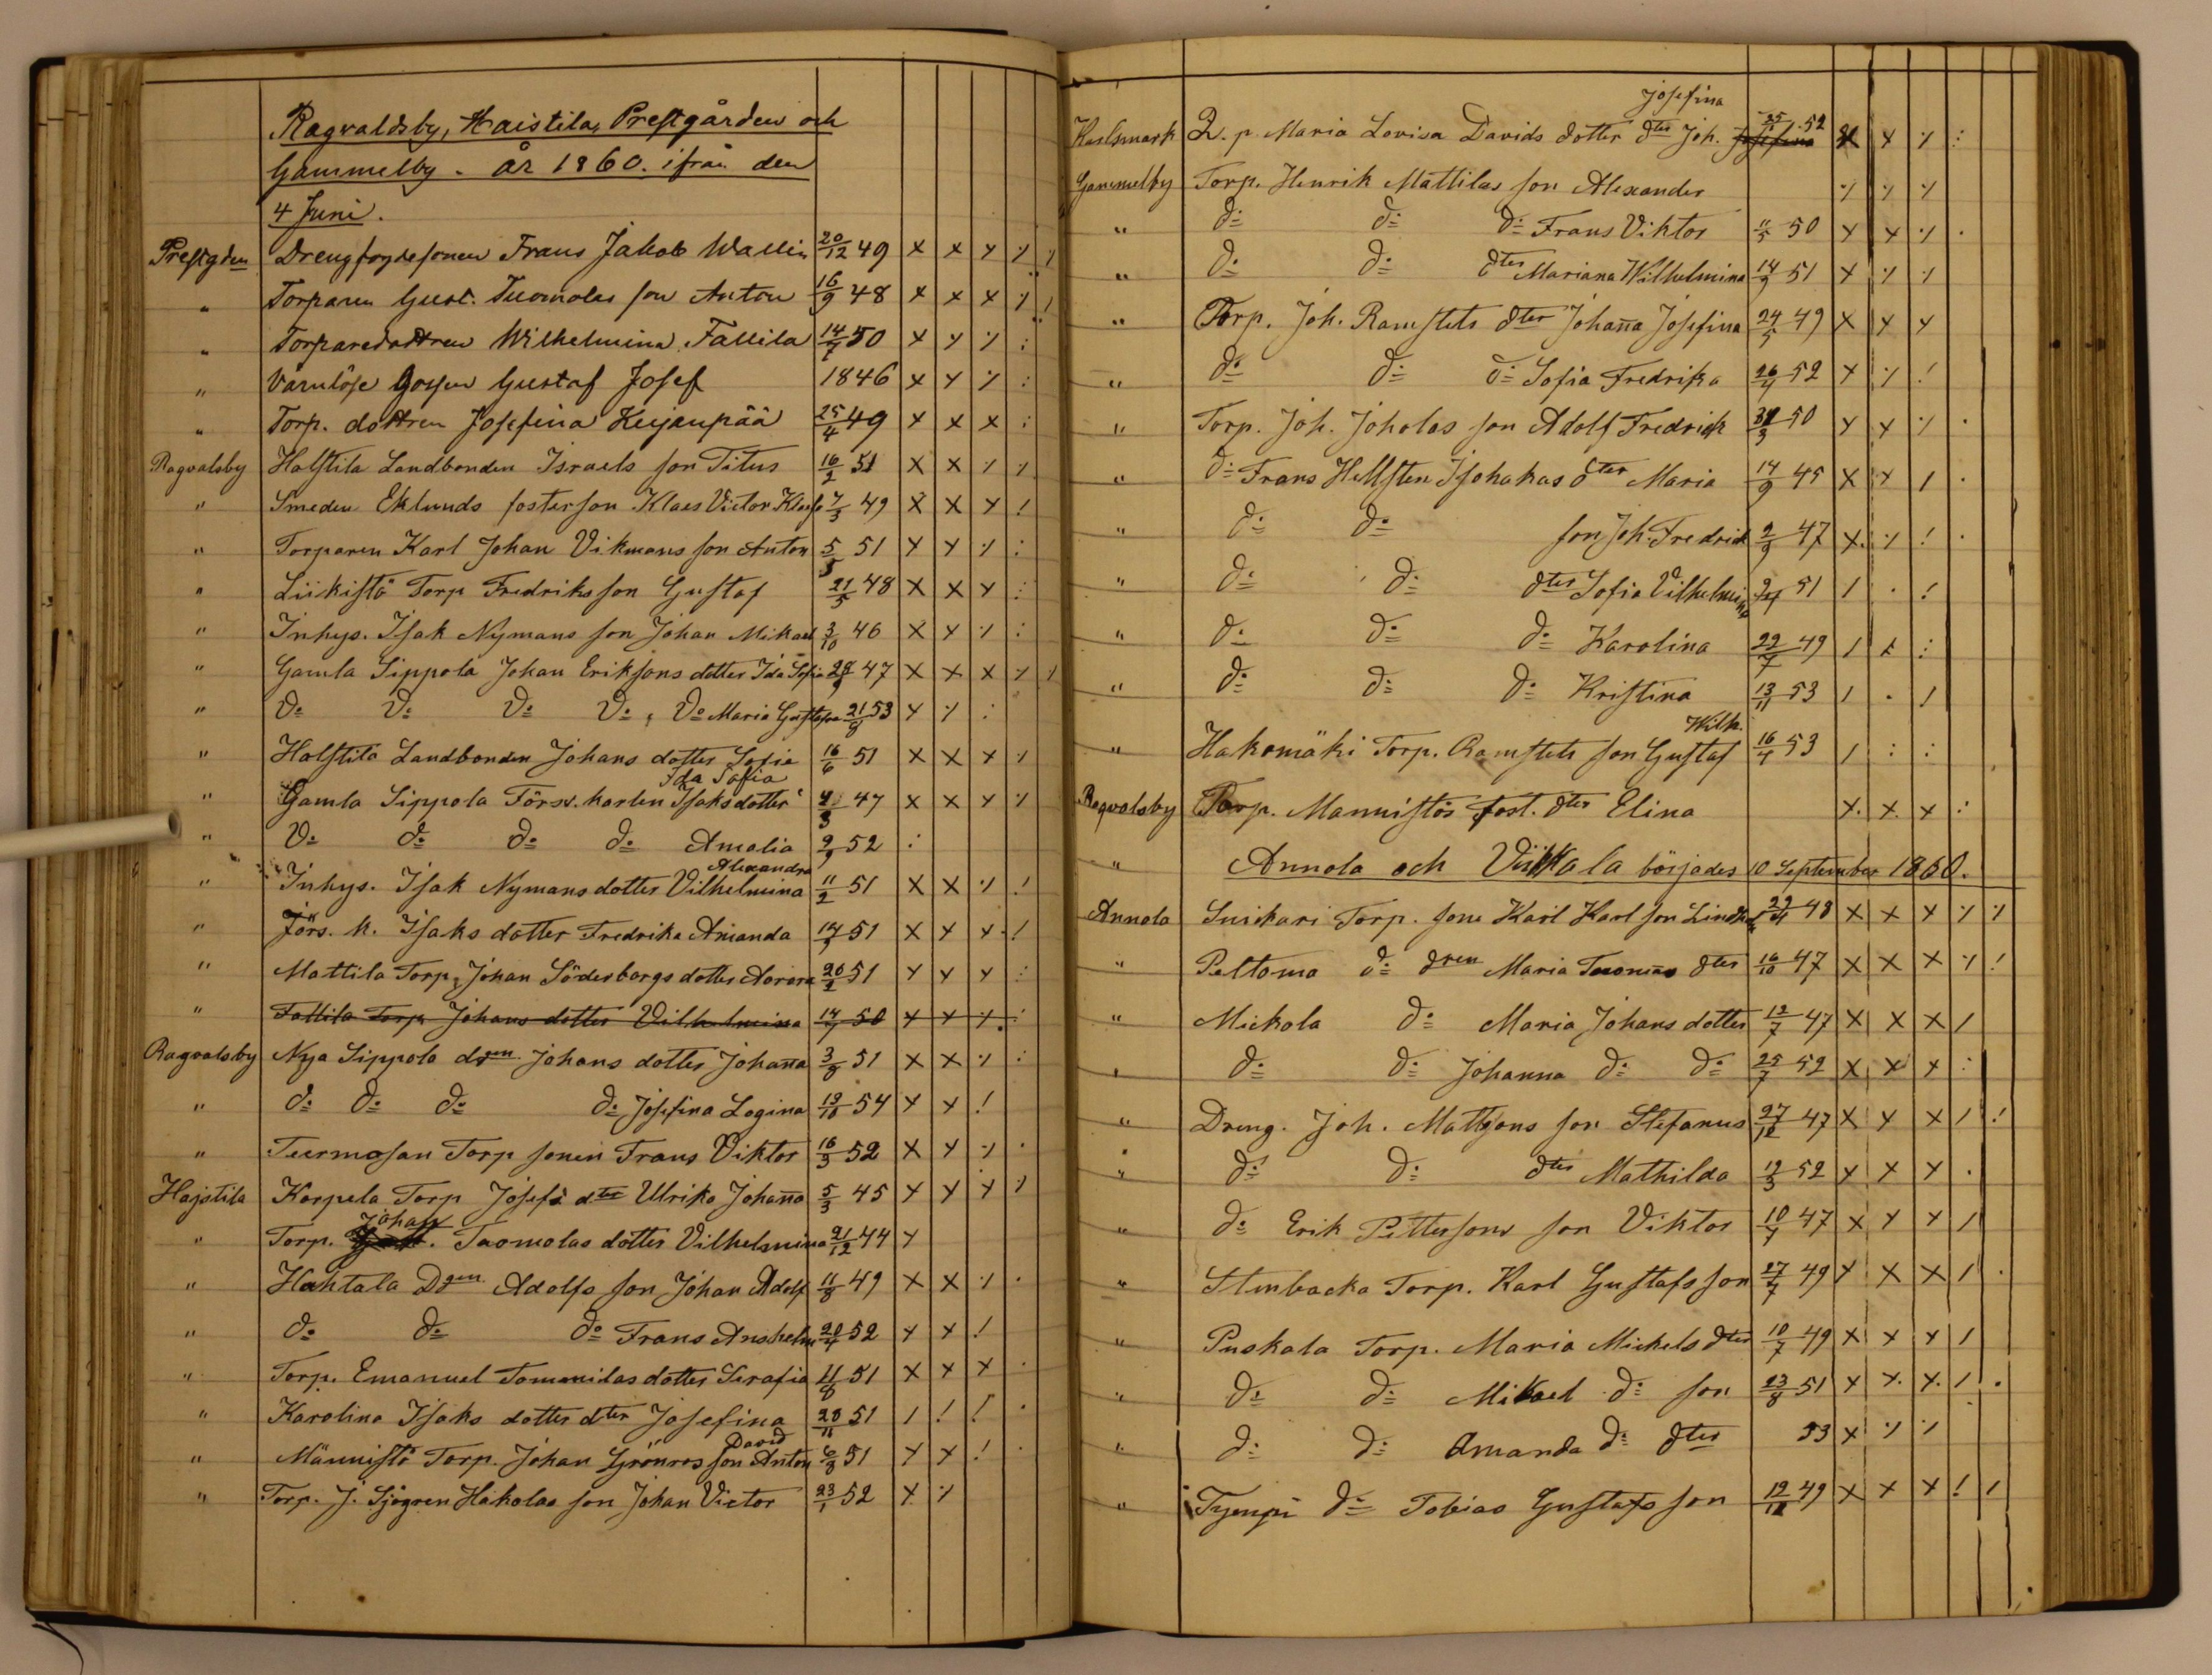 Ragvaldsby, Haistila, Prestgården och
Gammelby. år 1860. ifrån den
4 Juni.
Prestgden Drengfogdesonen Frans Jakob Wallin 20/12 49 x x x ⁒ ⁒
" Torparen Gust. Tuomolas son Anton 16/9 48 x x x ⁒ !
" Torparedottren Wilhelmina Fallila 14/7 50 x x ⁒ :
" Värnlöse Gossen Gustaf Josef 1846 x x ⁒ :
" Torp. dottren Josefina Keijanpää 25/4 49 x x x :
Ragvalsby Holstila Landbonden Israels son Titus 16/2 51 x x ⁒ ⁒
" Smeden Eklunds fosterson Klaes Victor 7/3 49 x x x !
" Torparen Karl Johan Vikmans son Anton 5/5 51 x x ⁒ :
" Liikistö Torp Fredriks son Gustaf 21/5 48 x x x :
" Inhys. Isak Nymans son Johan Mikael 3/10 46 x x ⁒ :
" Gamla Sippola Johan Eriksons dotter Ida Sofia 47 x x x ⁒ ⁒
" Do Do Do Do Do Maria Gustava 21/8 53 x ⁒ :
" Holstila Landbonden Johans dotter Sofia 16/6 51 x x x ⁒
Ida Sofia
" Gamla Sippola Försv. karlen Isaks dotter 47 x x x ⁒
" Do do do do Amalia 2/9 52 :
Alexandra
" Inhys. Isak Nymans dotter Vilhelmina 11/2 51 x x ⁒ !
" Förs. k. Isaks dotter Fredrika Amanda 51 x x x !
" Mattila Torp. Johan Söderborgs dotter Aurora 20/2 51 x x x :
" Fallila Torp Johans dotter Vilhelmina 14/7 50 x x ⁒ :
Ragvalsby Nya Sippola dgen Johans dotter Johanna 3/8 51 x x ⁒ :
" do do do do Josefina Logina 54 x x !
" Teermosan Torp sonen Frans Viktor 16/3 52 x x ⁒ .
Hajstila Korpela Torp Josefs dter Ulrika Johanna 5/3 45 x x x ⁒
Johan
" Torp. Tuomolas dotter Vilhelmina 21/12 44 x
" Hahtala Dgen Adolfs son Johan Adolf 11/8 49 x x ⁒ .
" do do do Frans Anshelm 20/4 52 x x !
" Torp. Emanuel Tommilas dotter Serafia 51 x x x .
" Karolina Isaks dotter dter Josefina 28/11 51 / ! ! .
David
" Männistö Torp. Johan Grönros son Anton 6/8 51 x x ! .
" Torp. J. Sjögren Hakolas son Johan Victor 23/1 52 x ⁒
Josefina
Karlsmark Q. p. Maria Lovisa Davids dotter dter Joh. Josefina 52 x x ⁒ :
Gammelby Torp. Henrik Mattilas son Alexander ⁒ ⁒ ⁒
" do do do Frans Viktor 11/5 50 x x ⁒ .
" do do dter Mariana Wilhelmina 14/9 51 x ⁒ ⁒
" Torp. Joh. Ramstets dter Johanna Josefina 24/5 49 x x x
" do do do Sofia Fredrika 52 x ⁒ !
" Torp. Joh. Joholas son Adolf Fredrick 50 x x ⁒ .
" do Frans Hellsten Isohakas dter Maria 14/9 45 x x / .
" do do son Joh. Fredrick 2/9 47 x. ⁒ ! .
" do do dter Sofia Vilhelmina 51 / . !
" do do do Karolina 22/7 49 / x :
" do do do Kristina 13/11 53 / . !
Wilh.
" Hakomäki Torp. Ramstets son Gustaf 16/4 53 / : :
Ragvalsby Torp. Mannistös fost. dter Elina x. x. x :
" Annola och Viikkala börjades 10 September 1860.
Annola Snickari Torp. sone Karl Karl son 48 x x x ⁒ ⁒
" Peltoma do dren Maria Tuomas dter 16/10 47 x x x ⁒ !
" Mickola do Maria Johans dotter 12/7 47 x x x /
" do do Johanna do do 25/7 52 x x x :
" Dreng. Joh. Mattsons son Stefanus 27/12 47 x x x / !
" do do dter Mathilda 12/3 52 x x x .
" do Erik Pettersons son Viktor 47 x x x /
" Stenbacka Torp. Karl Gustafs son 27/7 49 x x x / .
" Puskala Torp. Maria Mickels dter 10/7 49 x x x /
" do do Mikael do son 23/8 51 x x. x. / .
" do do Amanda do dter 53 x ⁒ ⁒
" Tyenpi do Tobias Gustafs son 49 x x x ! /